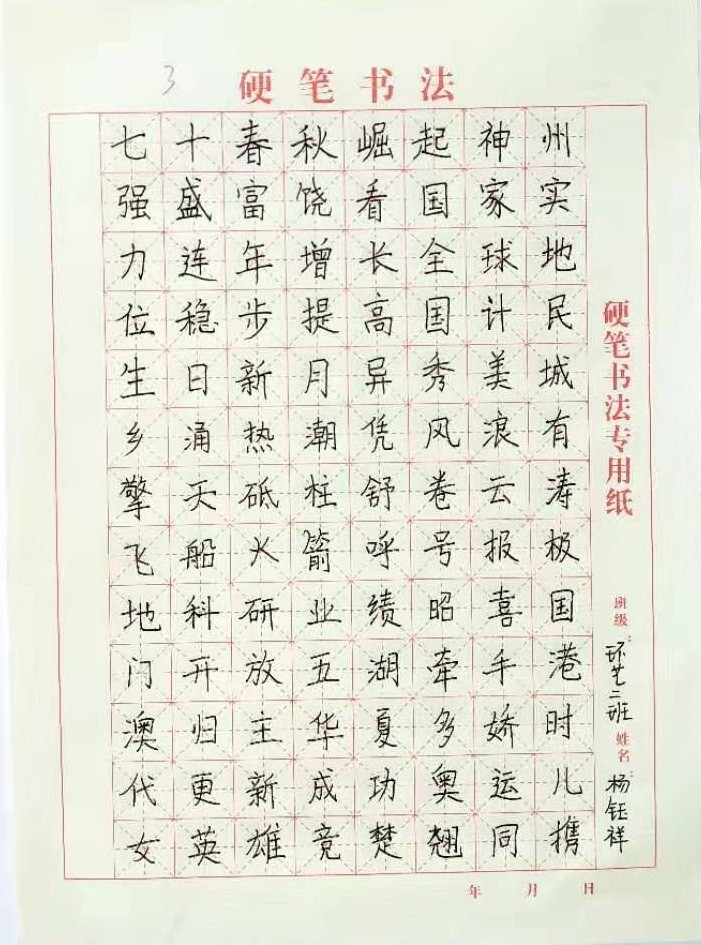 3
硬笔书法
七十春秋崛起神州
强盛富饶看国家实
力连年增长全球地
位稳步提高国计民
生日新月异秀美城
乡涌热潮凭风浪有
擎天砥柱舒卷云涛
飞船火箭呼号报极
地科研业绩昭喜国
门开放五湖牵手港
澳归主华夏多娇时
代更新成功奥运儿
女英雄竞楚翘同携
硬笔书法专用纸
班级:环艺二班
姓名:杨钰祥
年 月 日